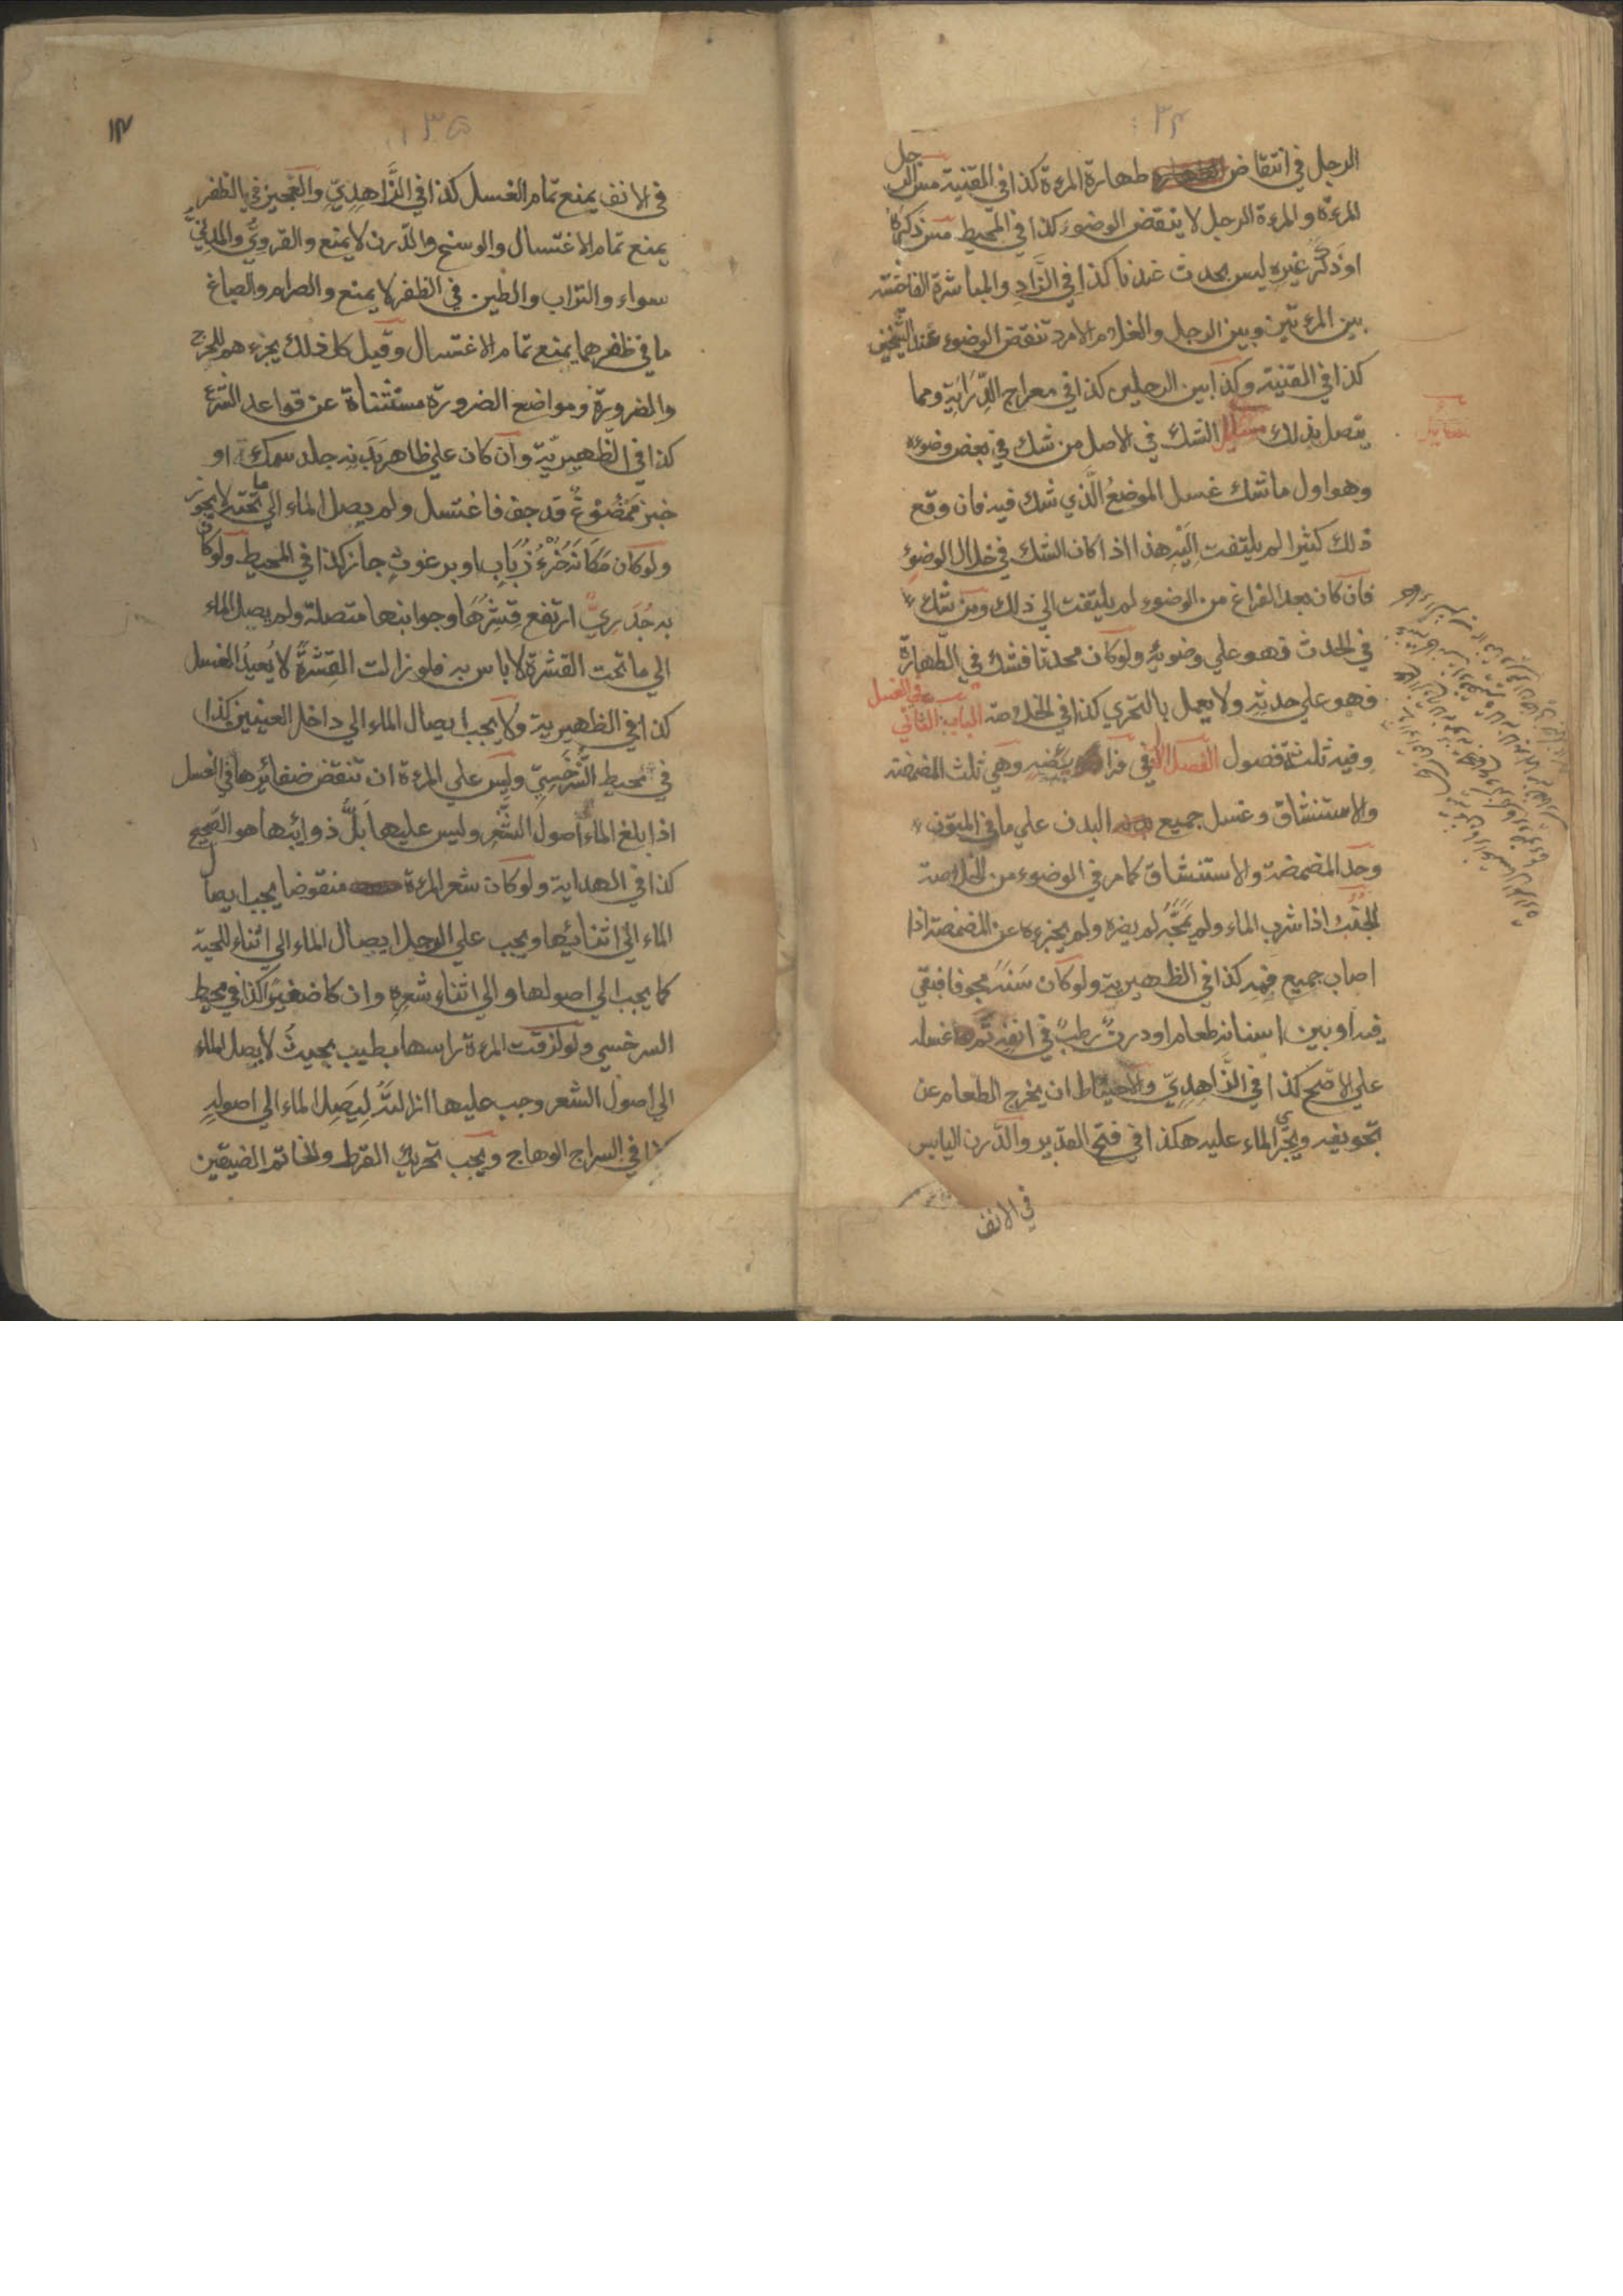 ٣٤
الرجل في انتقاض طهارة المرءة كذا في القنية مس الرجل
المرءة والمرءة الرجل لا ينقض الوضوء كذا في المحيط مس ذكره
او ذكر غيره ليس بحدث عندنا كذا في الزاد والمباشرة الفاحشة
بين المرءتين وبين الرجل والغلام الامرد تنقض الوضوء عند الشيخين
كذا في القنية وكذا بين الرجلين كذا في معراج الدراية ومما
يتصل بذلك مسائل الشك في الاصل من شك في بعض وضوءه
وهو اول ما شك غسل الموضع الذي شك فيه فان وقع
ذلك كثيرا لم يلتفت اليه هذا اذا كان الشك في خلال الوضوء
فان كان بعد الفراغ من الوضوء لم يلتفت الي ذلك ومن شك
في الحدث فهو علي وضوئه ولو كان محدثا فشك في الطهارة
فهو علي حدثه ولا يعمل بالتحري كذا في الخلاصة الباب الثاني في الغسل
وفيه ثلثة فصول الفصل الاول في فرائضه وهي ثلث المضمضة
والاستنشاق وغسل جميع البدن علي ما في المتون
وحد المضمضة والاستنشاق كما مر في الوضوء من الخلاصة
الجنب اذا شرب الماء ولم يمجه لم يضره ولم يجزءه عن المضمضة اذا
اصاب جميع فمه كذا في الظهيرية ولو كان سنه مجوفا فبقي
فيه او بين اسنانه طعام او درن رطب في انفه تم غسله
علي الاصح كذا في الزاهدي والاحتياط ان يخرج الطعام عن
تجويفه ويجري الماء عليه هكذا في فتح القدير والدرن اليابس
في الانف
٣٥
١٤
في الانف يمنع تمام الغسل كذا في الزاهدي والعجين في الظفر
يمنع تمام الاغتسال والوسخ والدرن لا يمنع والقروي والمدني
سواء والتراب والطين في الظفر لا يمنع والصرام والصباغ
ما في ظفرهما يمنع تمام الاغتسال وقيل كل ذلك يجزءهم للحرج
والضرورة ومواضع الضرورة مستثناة عن قواعد الشرع
كذا في الظهيرية وان كان علي ظاهر بدنه جلد سمك او
خبز ممضوغ قد جف فاغتسل ولم يصل الماء الي ما تحته لا يجوز
ولو كان مكانه خرء ذباب او برغوث جاز كذا في المحيط ولو كان
به جدري ارتفع قشرها وجوانبها متصلة ولم يصل الماء
الي ما تحت القشرة لا باس به فلو زالت القشرة لا يعيد الغسل
كذا في الظهيرية ولا يجب ايصال الماء الي داخل العينين كذا
في محيط السرخسي وليس علي المرءة ان تنقض ضفائرها في الغسل
اذا بلغ الماء اصول الشعر وليس عليها بل ذوائبها هو الصحيح
كذا في الهداية ولو كان شعر المرءة منقوضا يجب ايصال
الماء الي اثنائها ويجب علي الرجل ايصال الماء الي اثناء اللحية
كما يجب الي اصولها والي اثناء شعره وان كا ضفيرا كذا في محيط
السرخسي ولو لزقت المرءة راسها بطيب بحيث لا يصل الماء
الي اصول الشعر وجب عليها ازالته ليصل الماء الي اصوله
كذا في السراج الوهاج ويجب تحريك القرط والخاتم الضيقين